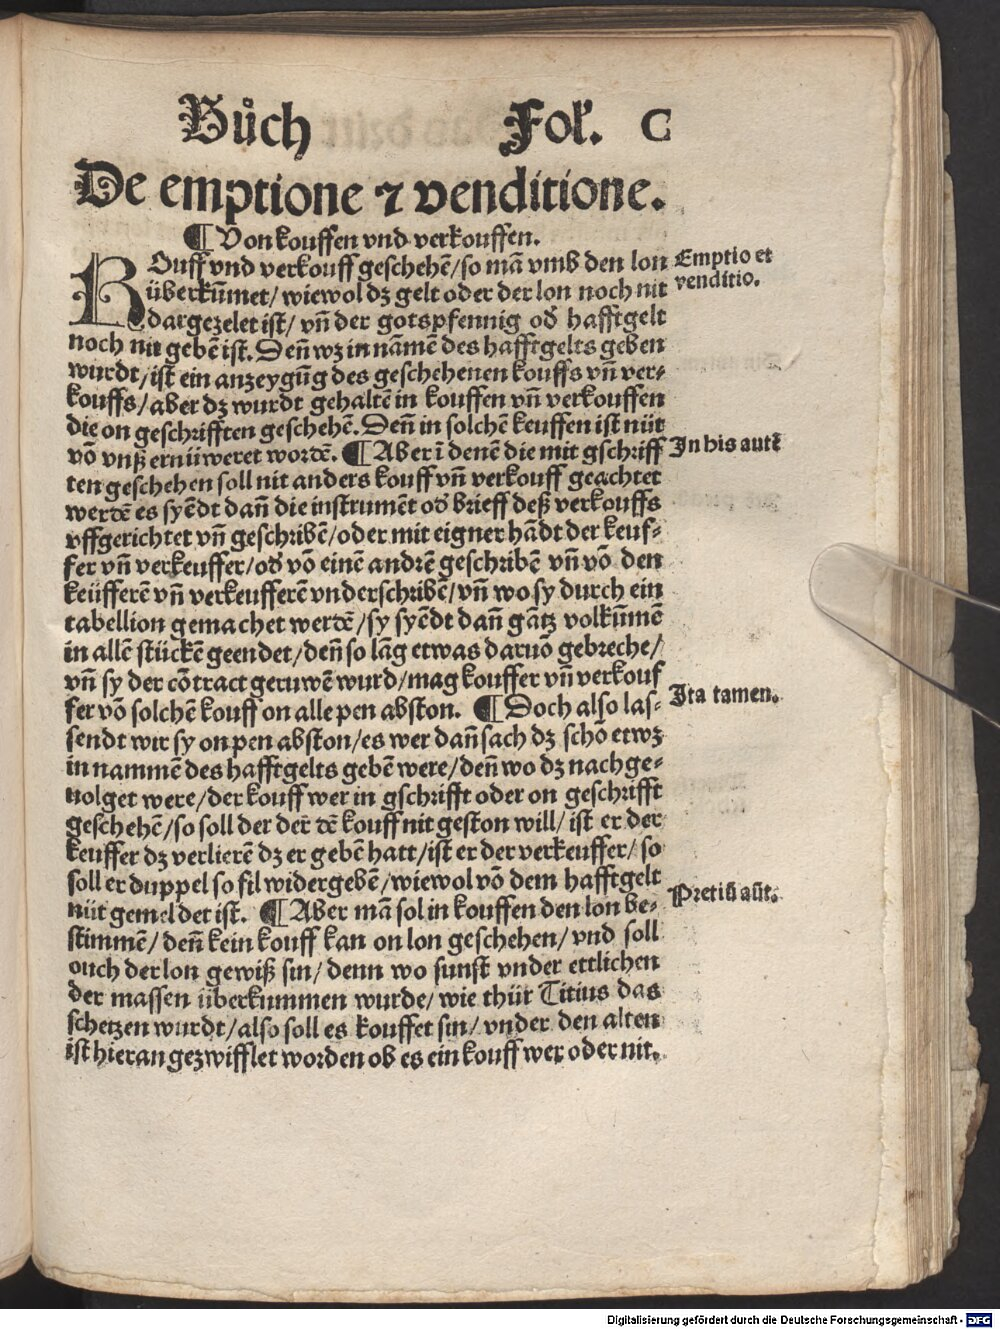 Bůch Fol. C
De emptione ⁊ venditione.
¶ Von kouffen vnd verkouffen.
KOuff vnd verkouff geschehẽ/so mã vmb den lon
Emptio et
venditio.
überkũmet/wiewol dz gelt oder der lon noch nit
dargezelet ist/ vñ der gotspfennig od̛ hafftgelt
noch nit gebẽ ist. Deñ wz in nãmẽ des hafftgelts geben
wurdt/ist ein anzeygũg des geschehenen kouffs vñ ver⸗
kouffs/aber dz wurdt gehaltẽ in kouffen vñ verkouffen
die on geschrifften geschehẽ. Deñ in solchẽ keuffen ist nüt
võ vnß ernüweret wordẽ. ¶ Aber ĩ denẽ die mit gschriff
In his autẽ
ten geschehen soll nit anders kouff vñ verkouff geachtet
werdẽ es syẽdt dañ die instrumẽt od̛ brieff deß verkouffs
vffgerichtet vñ geschribẽ/oder mit eigner hãdt der keuf⸗
fer vñ verkeuffer/od̛ võ einẽ andrẽ geschribẽ vñ võ den
keüfferẽ vñ verkeufferẽ vnderschribẽ/vñ wo sy durch ein
tabellion gemachet werdẽ/sy syẽdt dañ gãtz volkũmẽ
in allẽ stückẽ geendet/deñ so lãg etwas daruõ gebreche/
vñ sy der cõtract geruwẽ wurd/mag kouffer vñ verkouf
fer võ solchẽ kouff on alle pen abston. ¶ Doch also las⸗
Ita tamen.
sendt wir sy on pen abston/es wer dañ sach dz schõ etwz
in nammẽ des hafftgelts gebẽ were/deñ wo dz nachge⸗
uolget were/der kouff wer in gschrifft oder on geschrifft
geschehẽ/so soll der der dẽ kouff nit geston will/ ist er der
keuffer dz verlierẽ dz er gebẽ hatt/ist er der verkeuffer/ so
soll er duppel so fil widergebẽ/wiewol võ dem hafftgelt
nüt gemeldet ist. ¶ Aber mã sol in kouffen den lon be⸗
Pretiũ aũt.
stimmẽ/ deñ kein kouff kan on lon geschehen/ vnd soll
ouch der lon gewiß sin/ denn wo sunst vnder ettlichen
der massen überkummen wurde/ wie thür Titius das
schetzen wurdt/also soll es kouffet sin/ vnder den alten
ist hieran gezwifflet worden ob es ein kouff wer oder nit.
Digitalisierung gefördert durch die Deutsche Forschungsgemeinschaft - DFG